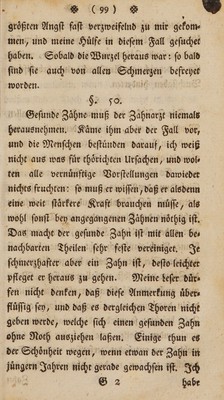 ( 99 )
größten Angst fast verzweifelnd zu mir gekom-
men, und meine Hülfe in diesem Fall gesuchet
haben. Sobald die Wurzel heraus war: so bald
sind sie auch von allen Schmerzen befreyet
worden.
§. 50.
Gesunde Zähne muß der Zahnarzt niemals
herausnehmen. Käme ihm aber der Fall vor,
und die Menschen bestünden darauf, ich weiß
nicht aus was für thörichten Ursachen, und wol-
len alle vernünftige Vorstellungen dawieder
nichts fruchten: so muß er wissen, daß er alsdenn
eine weit stärkere Kraft brauchen müsse, als
wohl sonst bey angegangenen Zähnen nöthig ist.
Das macht der gesunde Zahn ist mit allen be-
nachbarten Theilen sehr feste vereiniget. Je
schmerzhafter aber ein Zahn ist, desto leichter
pfleget er heraus zu gehen. Meine Leser dür-
fen nicht denken, daß diese Anmerkung über-
flüssig sey, und daß es dergleichen Thoren nicht
geben werde, welche sich einen gesunden Zahn
ohne Noth ausziehen laßen. Einige thun es
der Schönheit wegen, wenn etwan der Zahn in
jüngern Jahren nicht gerade gewachsen ist. Ich
G 2 habe